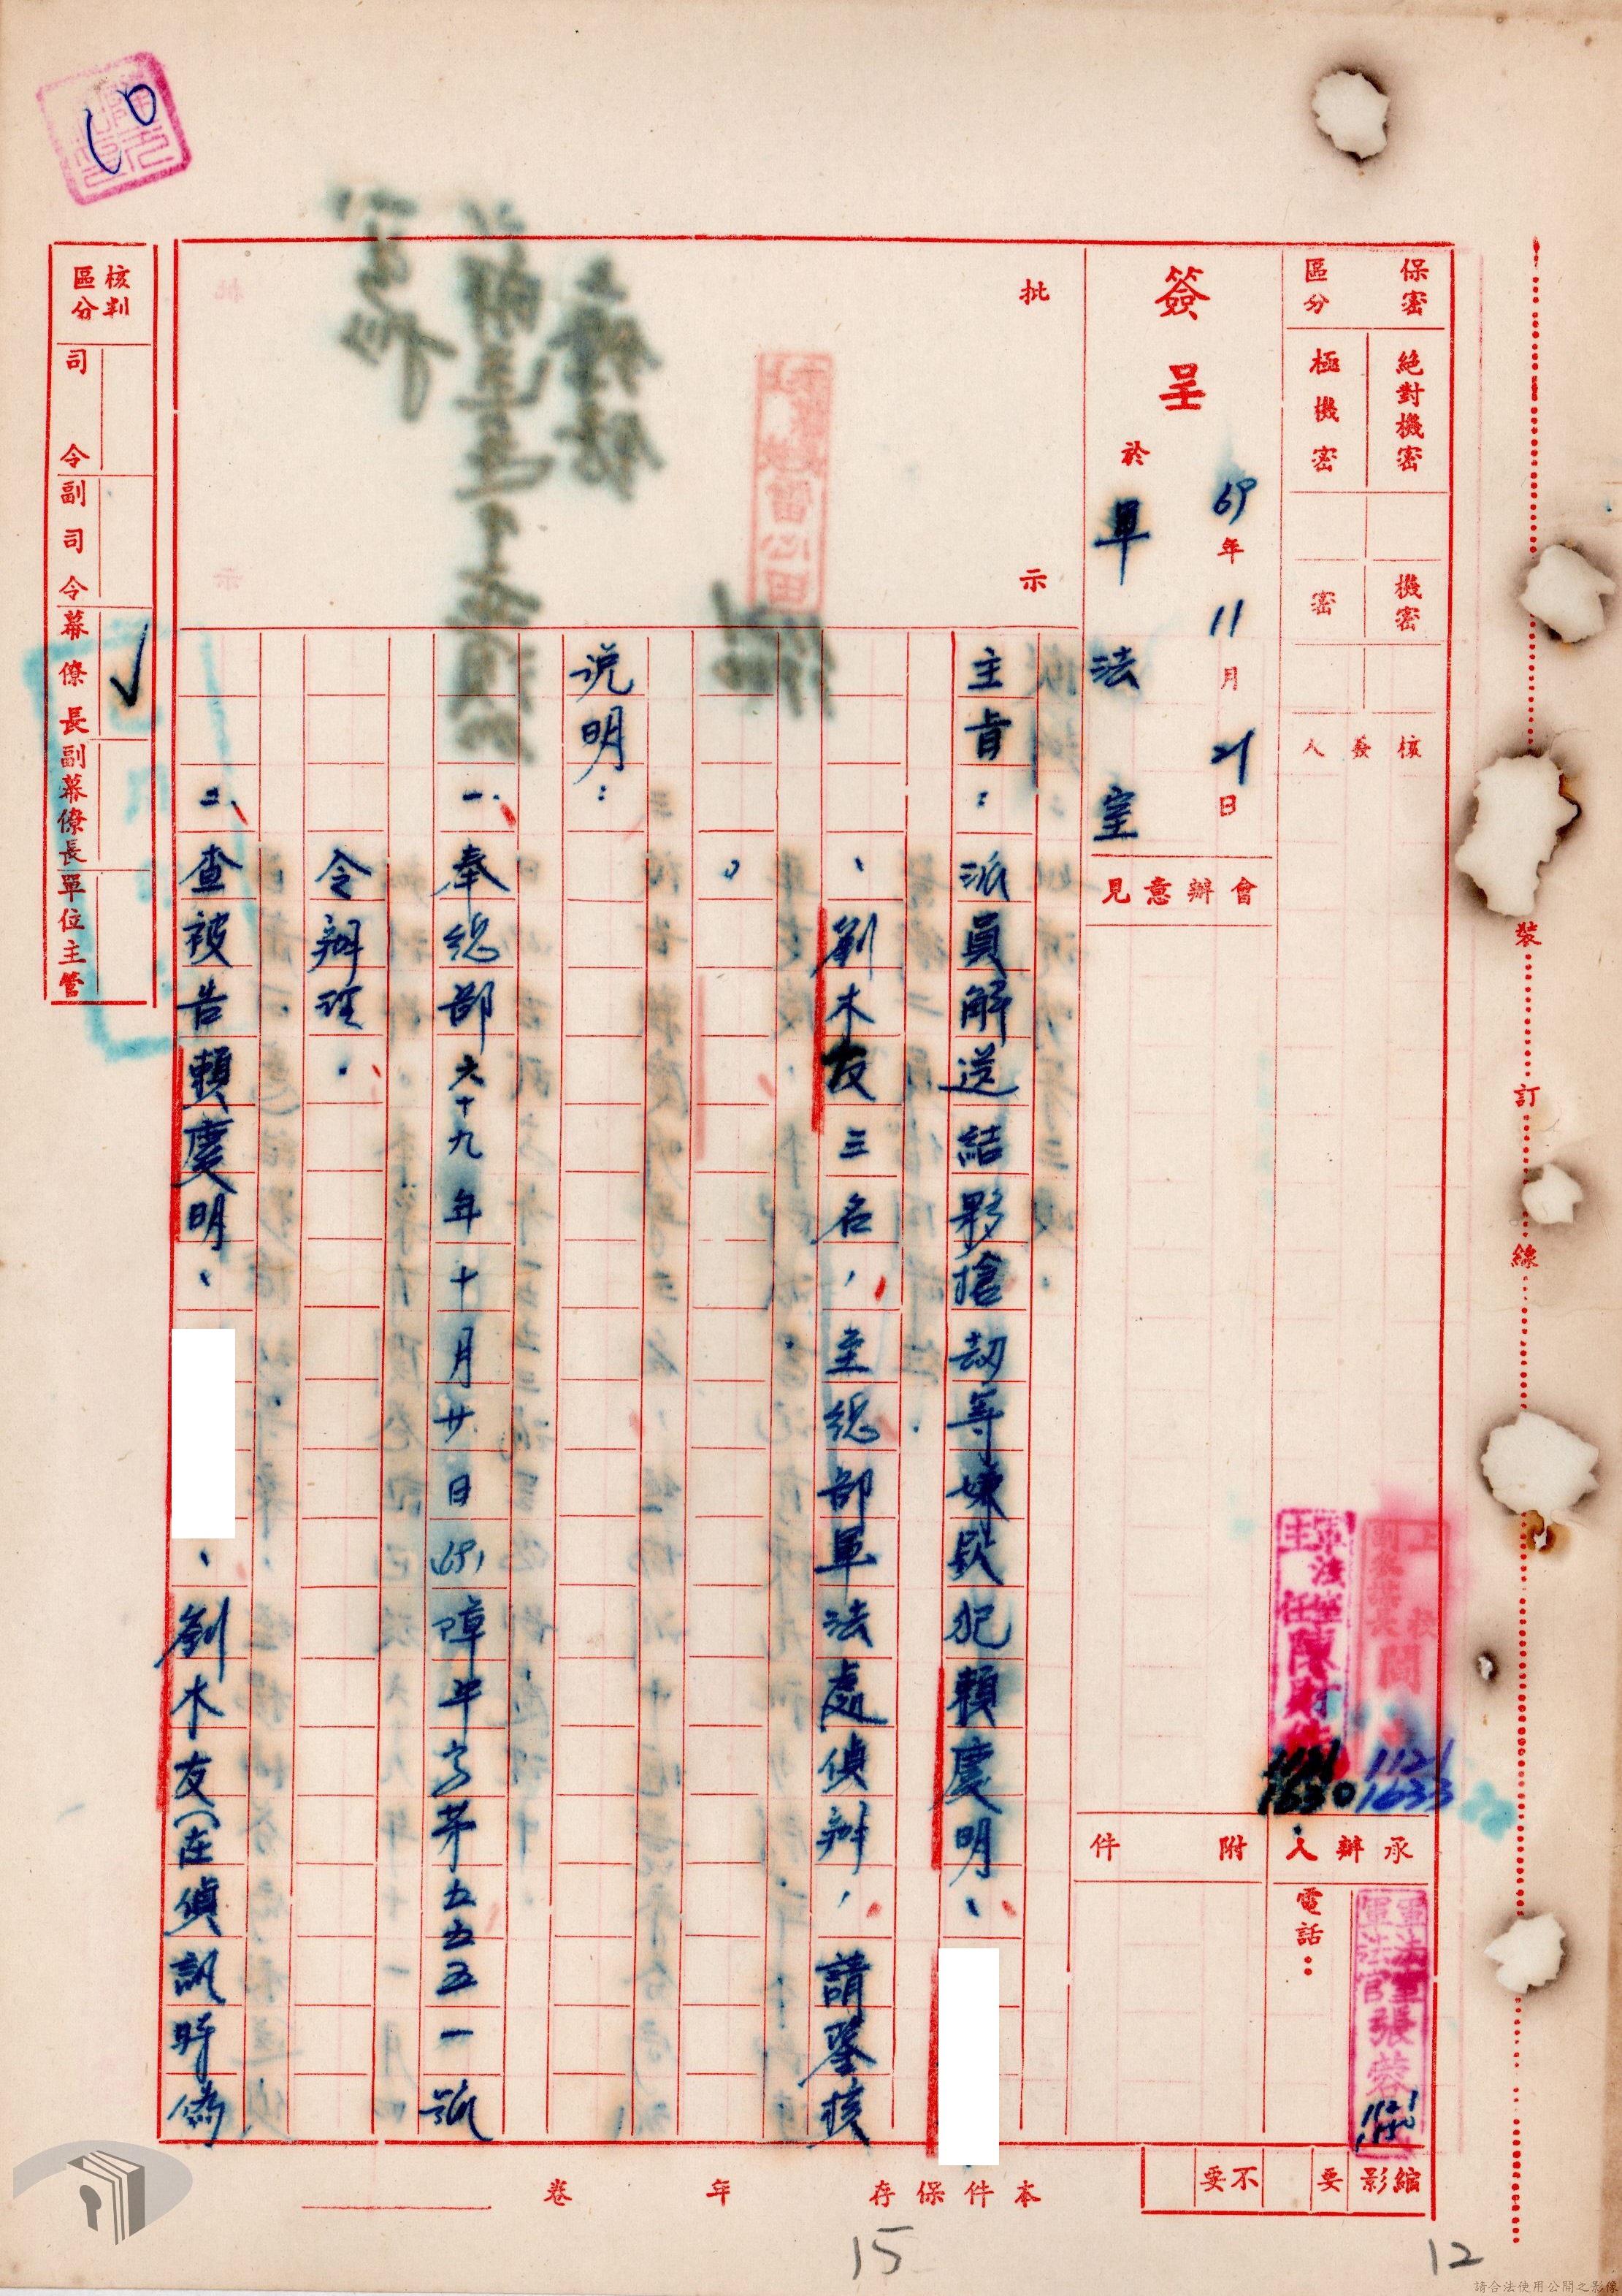 保密區分
絕對機密
極機密
機密
密
核發人
承辦人
電話：
簽呈
69年11月21日
於軍法室
會辦意見
附件
批示
主旨：派員解送結夥搶劫等嫌疑犯賴慶明、
、劉木友三名，至總部軍法處偵辦，請鑒核
。
说明：
一、奉總部六十九年十月廿日(69)障平字第五五五一號
令辦理．
二、查被告賴慶明、
、劉木友(在偵訊時偽
核判區分
司令
副司令
幕僚長
副幕僚長
單位主管
裝訂線
1121
1630
1121
1633
縮影
要
不要
本件保存年
卷
15
12
請合法使用公開之影像